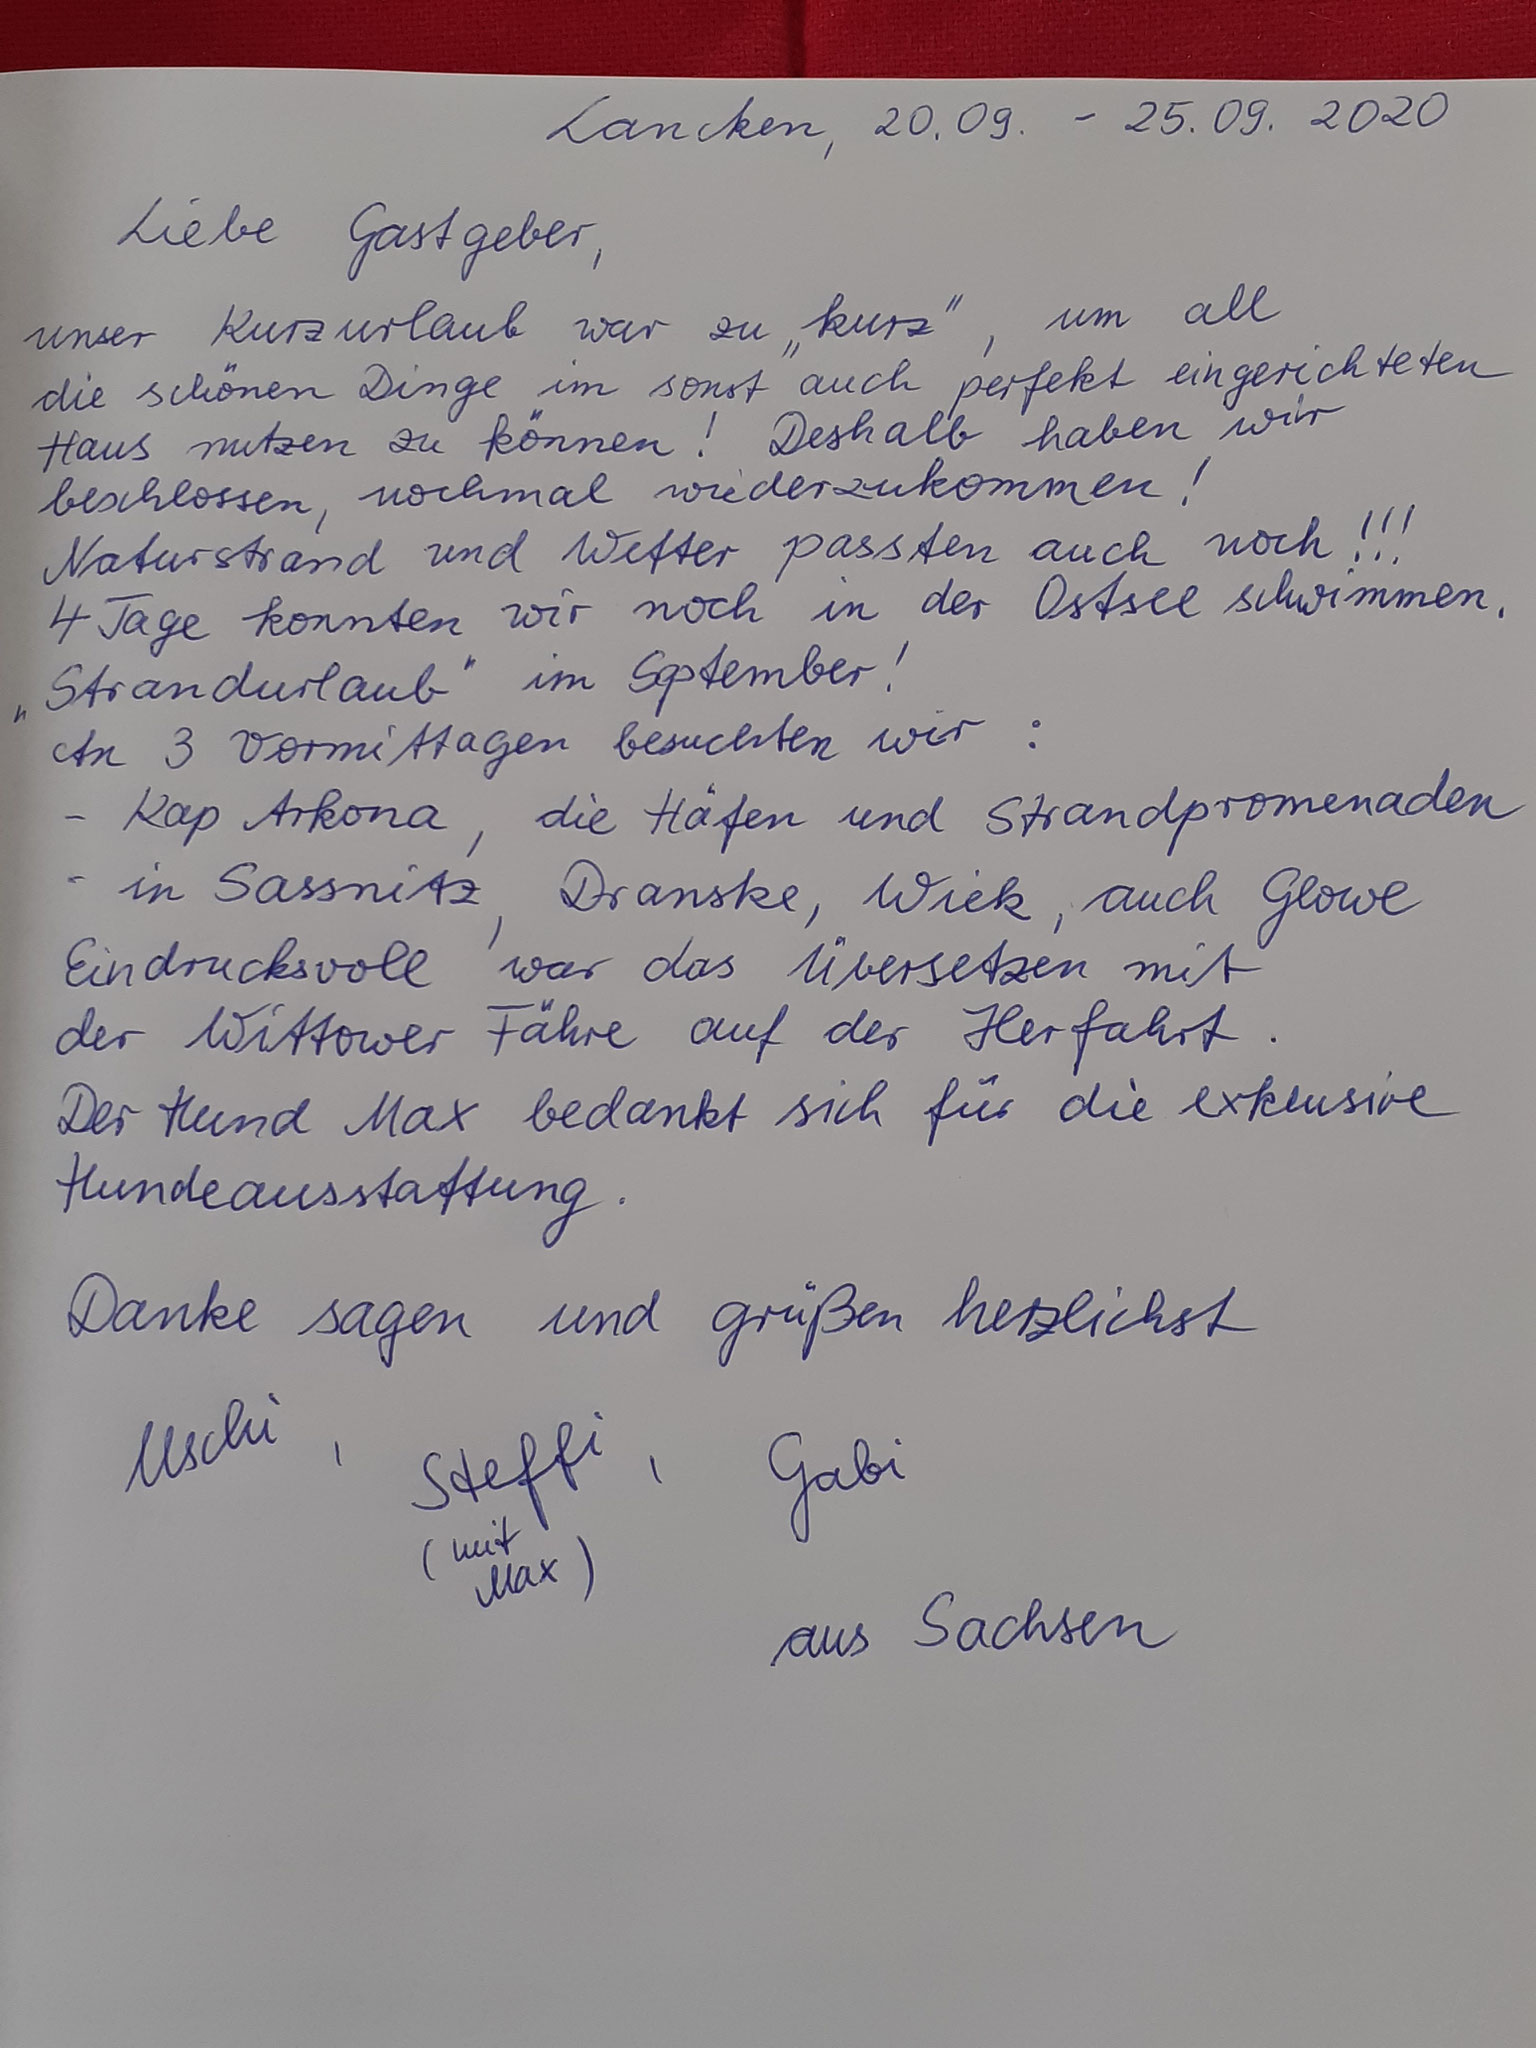 Lancken, 20.09. - 25.09. 2020
Liebe Gastgeber,
unser Kurzurlaub war zu „kurz“, um all
die schönen Dinge im sonst auch perfekt eingerichteten
Haus nutzen zu können! Deshalb haben wir
beschlossen, nochmal wiederzukommen!
Naturstrand und Wetter passten auch noch!!!
4 Tage konnten wir noch in der Ostsee schwimmen.
„Strandurlaub“ im September!
An 3 Vormittagen besuchten wir :
- Kap Arkona, die Häfen und Strandpromenaden
- in Sassnitz, Dranske, Wiek, auch Glowe
Eindrucksvoll war das Übersetzen mit
der Wittower Fähre auf der Herfahrt.
Der Hund Max bedankt sich für die exklusive
Hundeausstattung.
Danke sagen und grüßen herzlichst
Uschi, Steffi, Gabi
(mit
Max)
aus Sachsen